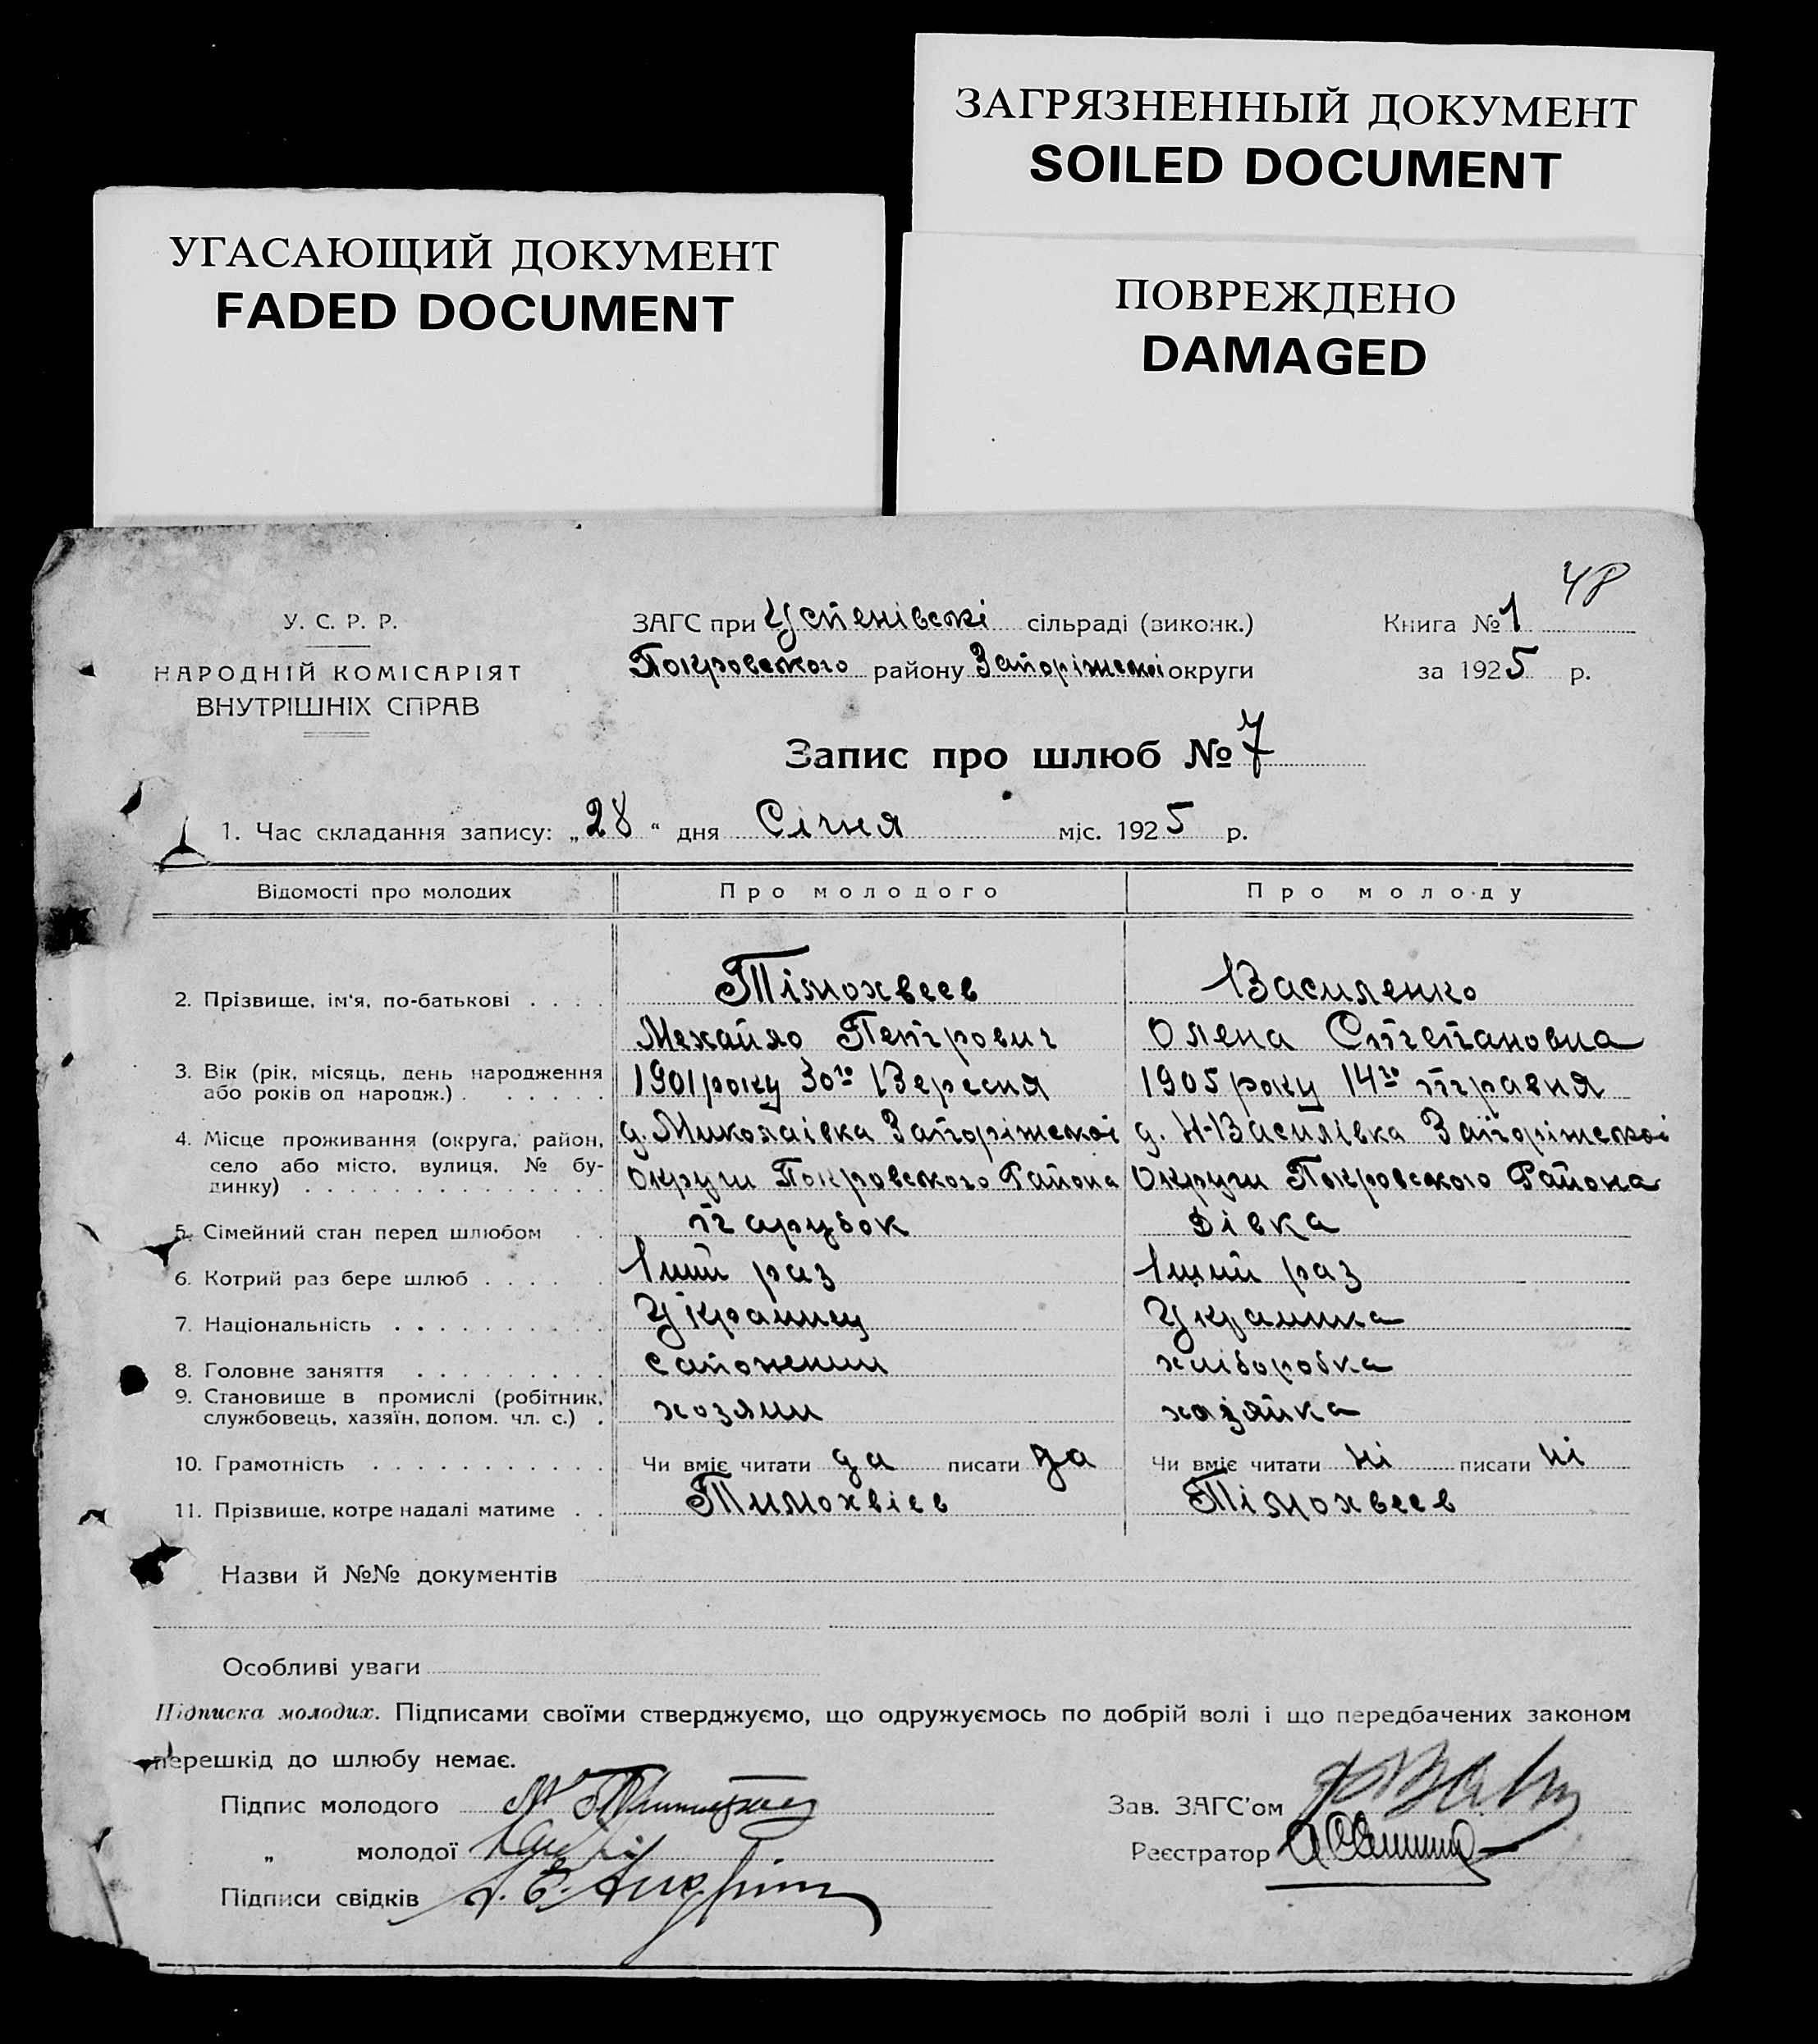 ЗАГРЯЗНЕННЫЙ ДОКУМЕНТ
SOILED DOCUMENT
УГАСАЮЩИЙ ДОКУМЕНТ
FADED DOCUMENT
ПОВРЕЖДЕНО
DAMAGED
48
У. С. Р. Р.
НАРОДНІЙ КОМІСАРІЯТ
ВНУТРІШНІХ СПРАВ
ЗАГС при Успенівскі сільраді (виконк.)
Покровского району Запоріжскоі округи
Книга № 1
за 1925 р.
Запис про шлюб № 7
1. Час складання запису: „28“ дня Січня міс. 1925 р.
Відомості про молодих Про молодого Про молоду
2. Прізвище, ім'я, по-батькові . . . . Тімохвеев Василенко
Михайло Петрович Олена Степановна
3. Вік (рік, місяць, день народження або років од народж.) . . . . . . 1901 року 30го Вересня 1905 року 14го травня
4. Місце проживання (округа, район, село або місто, вулиця, № будинку) . . . . . . . . . . . . . . д. Миколаівка Запоріжскоі д. Н-Василівка Запоріжскоі
Округи Покровского Района Округи Покровского Района
5. Сімейний стан перед шлюбом . . парубок дівка
6. Котрий раз бере шлюб . . . . . . 1ший раз 1ший раз
7. Національність . . . . . . . . . . Украинец Украинка
8. Головне заняття . . . . . . . . . сапожнии хліборобка
9. Становище в промислі (робітник, службовець, хазяїн, допом. чл. с.) . хозяин хазяйка
10. Грамотність . . . . . . . . . . . Чи вміє читати да писати да Чи вміє читати ні писати ні
11. Прізвище, котре надалі матиме . . Тимохвієв Тімохвеев
Назви й №№ документів
Особливі уваги
Підписка молодих. Підписами своїми стверджуємо, що одружуємось по добрій волі і що передбачених законом
перешкід до шлюбу немає.
Підпис молодого
„ молодої
Підписи свідків
Зав. ЗАГС'ом
Реєстратор